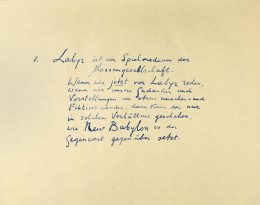 1. Labyr ist ein Spielmedium der
Massengesellschaft.
Wenn wir jetzt von Labyr reden,
Wenn wir unsere Gedanken und
Vorstellungen an etwas
Fiktives wenden, dann kann das nur
in solchem Verhältnis geschehen,
wie New Babylon es der
Gegenwart gegenüber setzt.